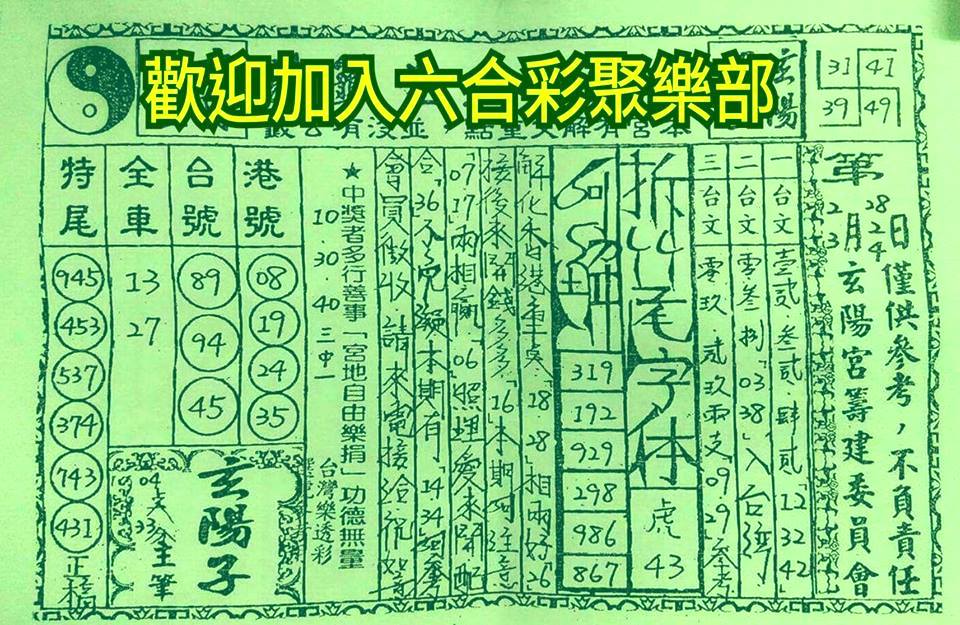 歡迎加入六合彩聚樂部
玄陽
31 41
39 49
僅供參考，不負責任
第 日
28
24
2
3
月玄陽宮籌建委員會
一台文 壹貳．叁貳 肆貳「12 32 42
二台文 零叁 捌「03 38入台灣
三台文 零玖．貳玖兩支09 29參考
拆 尾字体
虎
43
319
192
929
298
986
867
解化本日港重点「18 28相兩好「26
接後來開錢多多「16本期可注意
「07「17兩相贏「06照理愛來開配
合「36不免疑本期有「14 34
會員繳收請來電接洽祝如意
★中獎者多行善事「宮地自由樂捐」功德無量
10．30．40三中一
台灣樂透彩
港號
08
19
24
35
台號
89
94
45
全車
13
27
特尾
945
453
537
374
743
431
正
玄陽子
主筆
04
33